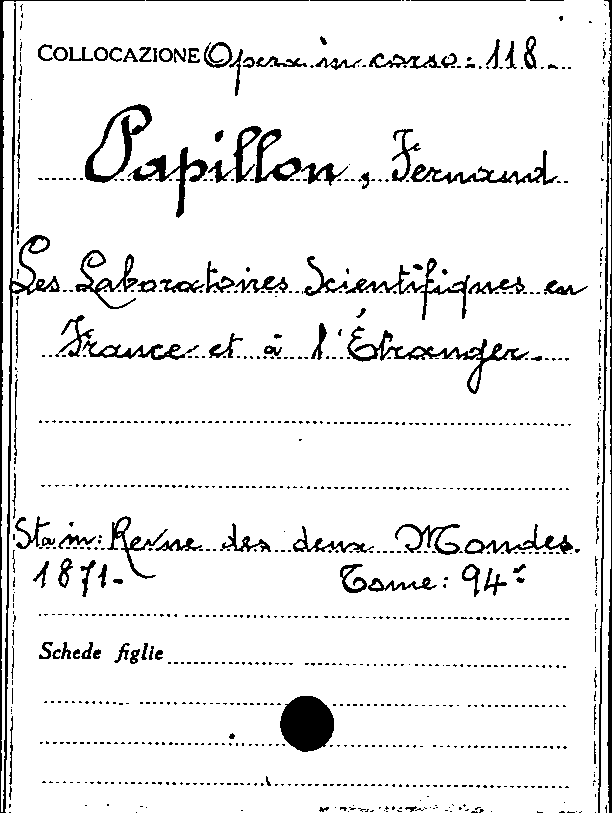 COLLOCAZIONE Opera in corso: 118.
Papillon, Fernand
Les Laboratoires Scientifiques en
France et à l'Étranger.
Sta in: Revue des deux Mondes.
1871. Tome: 94º
Schede figlie